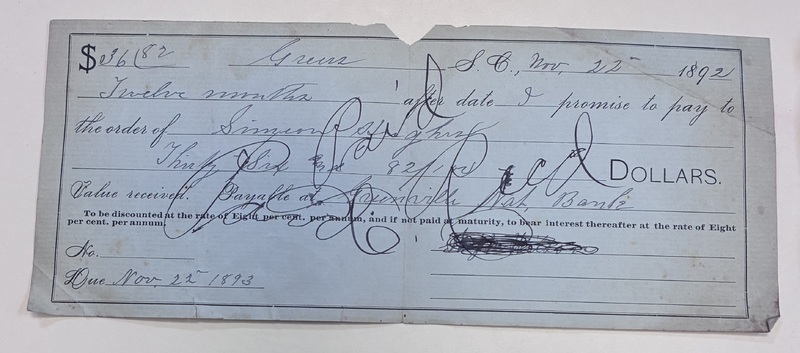 $ 36/82 Greer S. C., Nov. 22 1892
Twelve months after date I promise to pay to
the order of Simeon
Thirty Six & 82/100 DOLLARS.
Value received. Payable at Greenville Nat Bank
To be discounted at the rate of Eight per cent. per annum, and if not paid at maturity, to bear interest thereafter at the rate of Eight
per cent. per annum.
No.
Due Nov. 22 1893
Paid